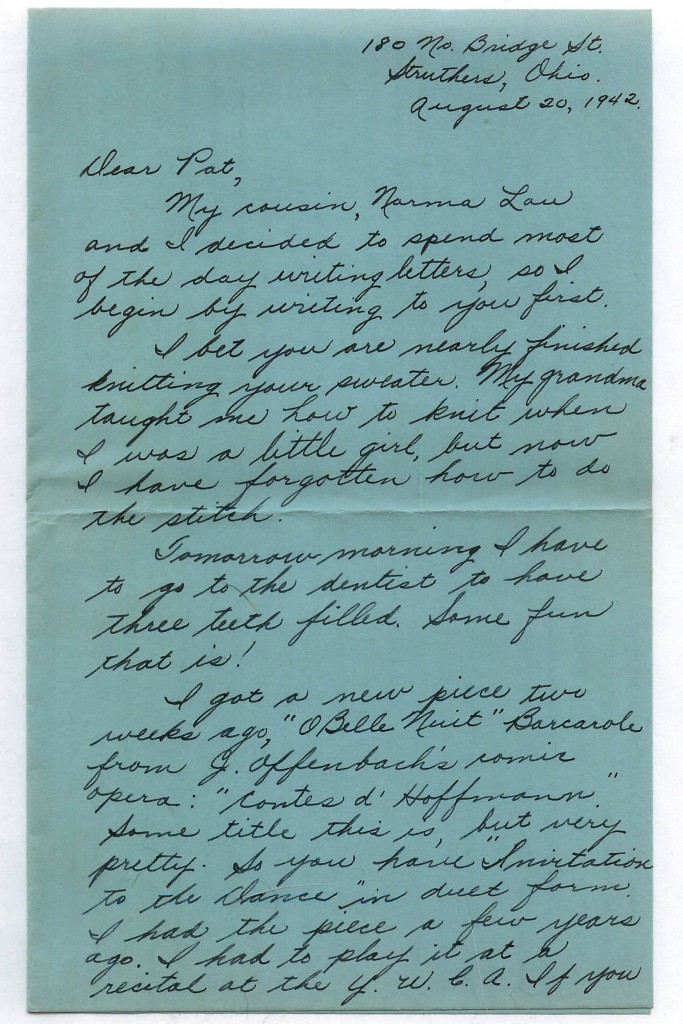 180 No. Bridge St.
Struthers, Ohio.
August 20, 1942.
Dear Pat,
My cousin, Norma Lou
and I decided to spend most
of the day writing letters, so I
begin by writing to you first.
I bet you are nearly finished
knitting your sweater. My grandma
taught me how to knit when
I was a little girl, but now
I have forgotten how to do
the stitch.
Tomorrow morning I have
to go to the dentist to have
three teeth filled. Some fun
that is!
I got a new piece two
weeks ago, "O Belle Nuit" Barcarole
from J. Offenbach's comic
opera: "Contes d' Hoffmann."
Some title this is, but very
pretty. So you have "Invitation
to the Dance" in duet form.
I had the piece a few years
ago. I had to play it at a
recital at the Y. W. C. A. If you